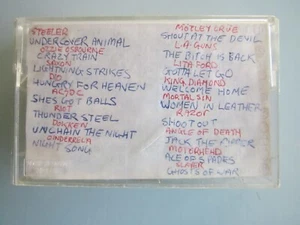 STEELER
UNDERCOVER ANIMAL
OZZIE OSBOURNE
CRAZY TRAIN
SAXON
LIGHTNING STRIKES
DIO
HUNGRY FOR HEAVEN
AC/DC
SHE'S GOT BALLS
RIOT
THUNDER STEEL
DOKKEN
UNCHAIN THE NIGHT
CINDERELA
NIGHT SONG
MOTLEY CRUE
SHOUT AT THE DEVIL
L.A. GUNS
THE BITCH IS BACK
LITA FORD
GOTTA LET GO
KING DIAMOND
WELCOME HOME
MORTAL SIN
WOMEN IN LEATHER
RAZOR
SHOOT OUT
ANGLE OF DEATH
JACK THE
MOTORHEAD
ACE OF SPADES
SLAYER
GHOSTS OF WAR